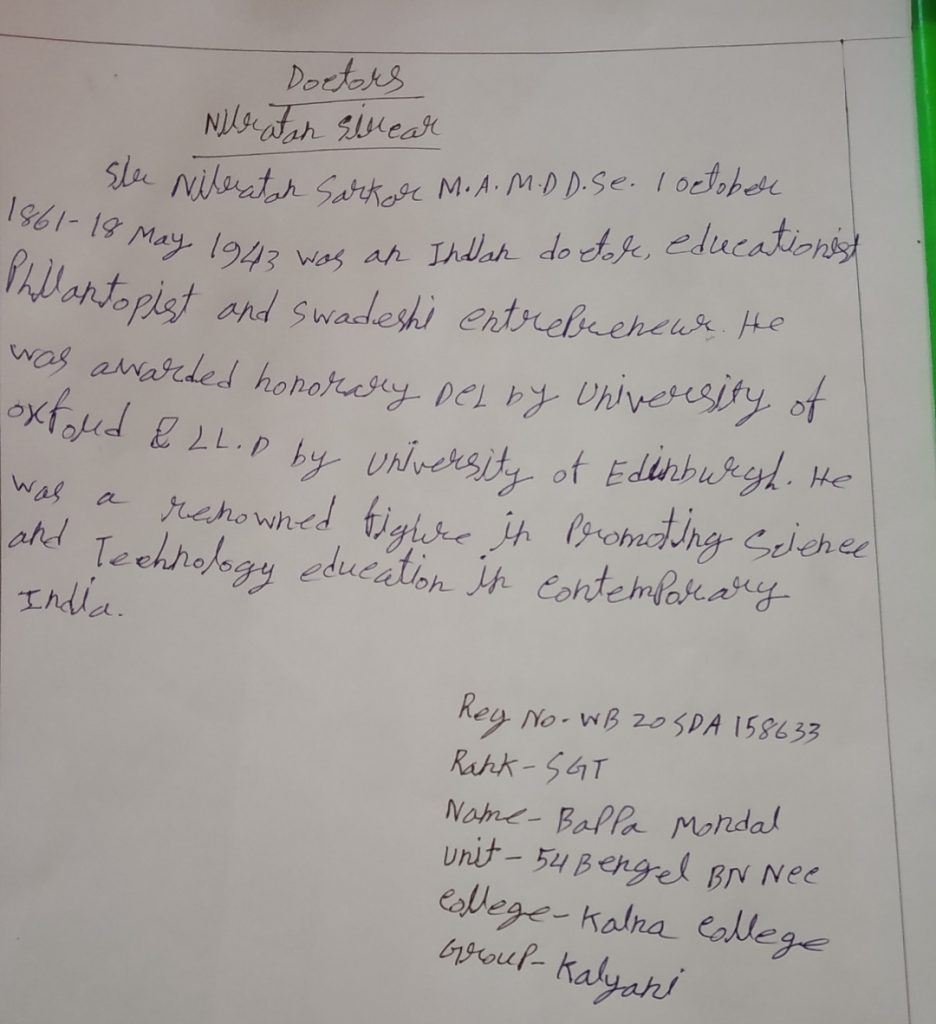 Doctors
Nilratan Sircar
Sir Nilratan Sarkar M.A. M.D D.Sc. 1 october
1861-18 May 1943 was an Indian doctor, educationist
Phillantopist and swadeshi entrepreneur. He
was awarded honorary DCL by University of
oxford & LL.D by university of Edinburgh. He
was a renowned figure in Promoting Science
and Technology education in contemporary
India.
Reg No- WB 20 SDA 158633
Rank - SGT
Name - Bappa Mondal
unit - 54 Bengel BN Ncc
college - Kalna college
Group - Kalyani